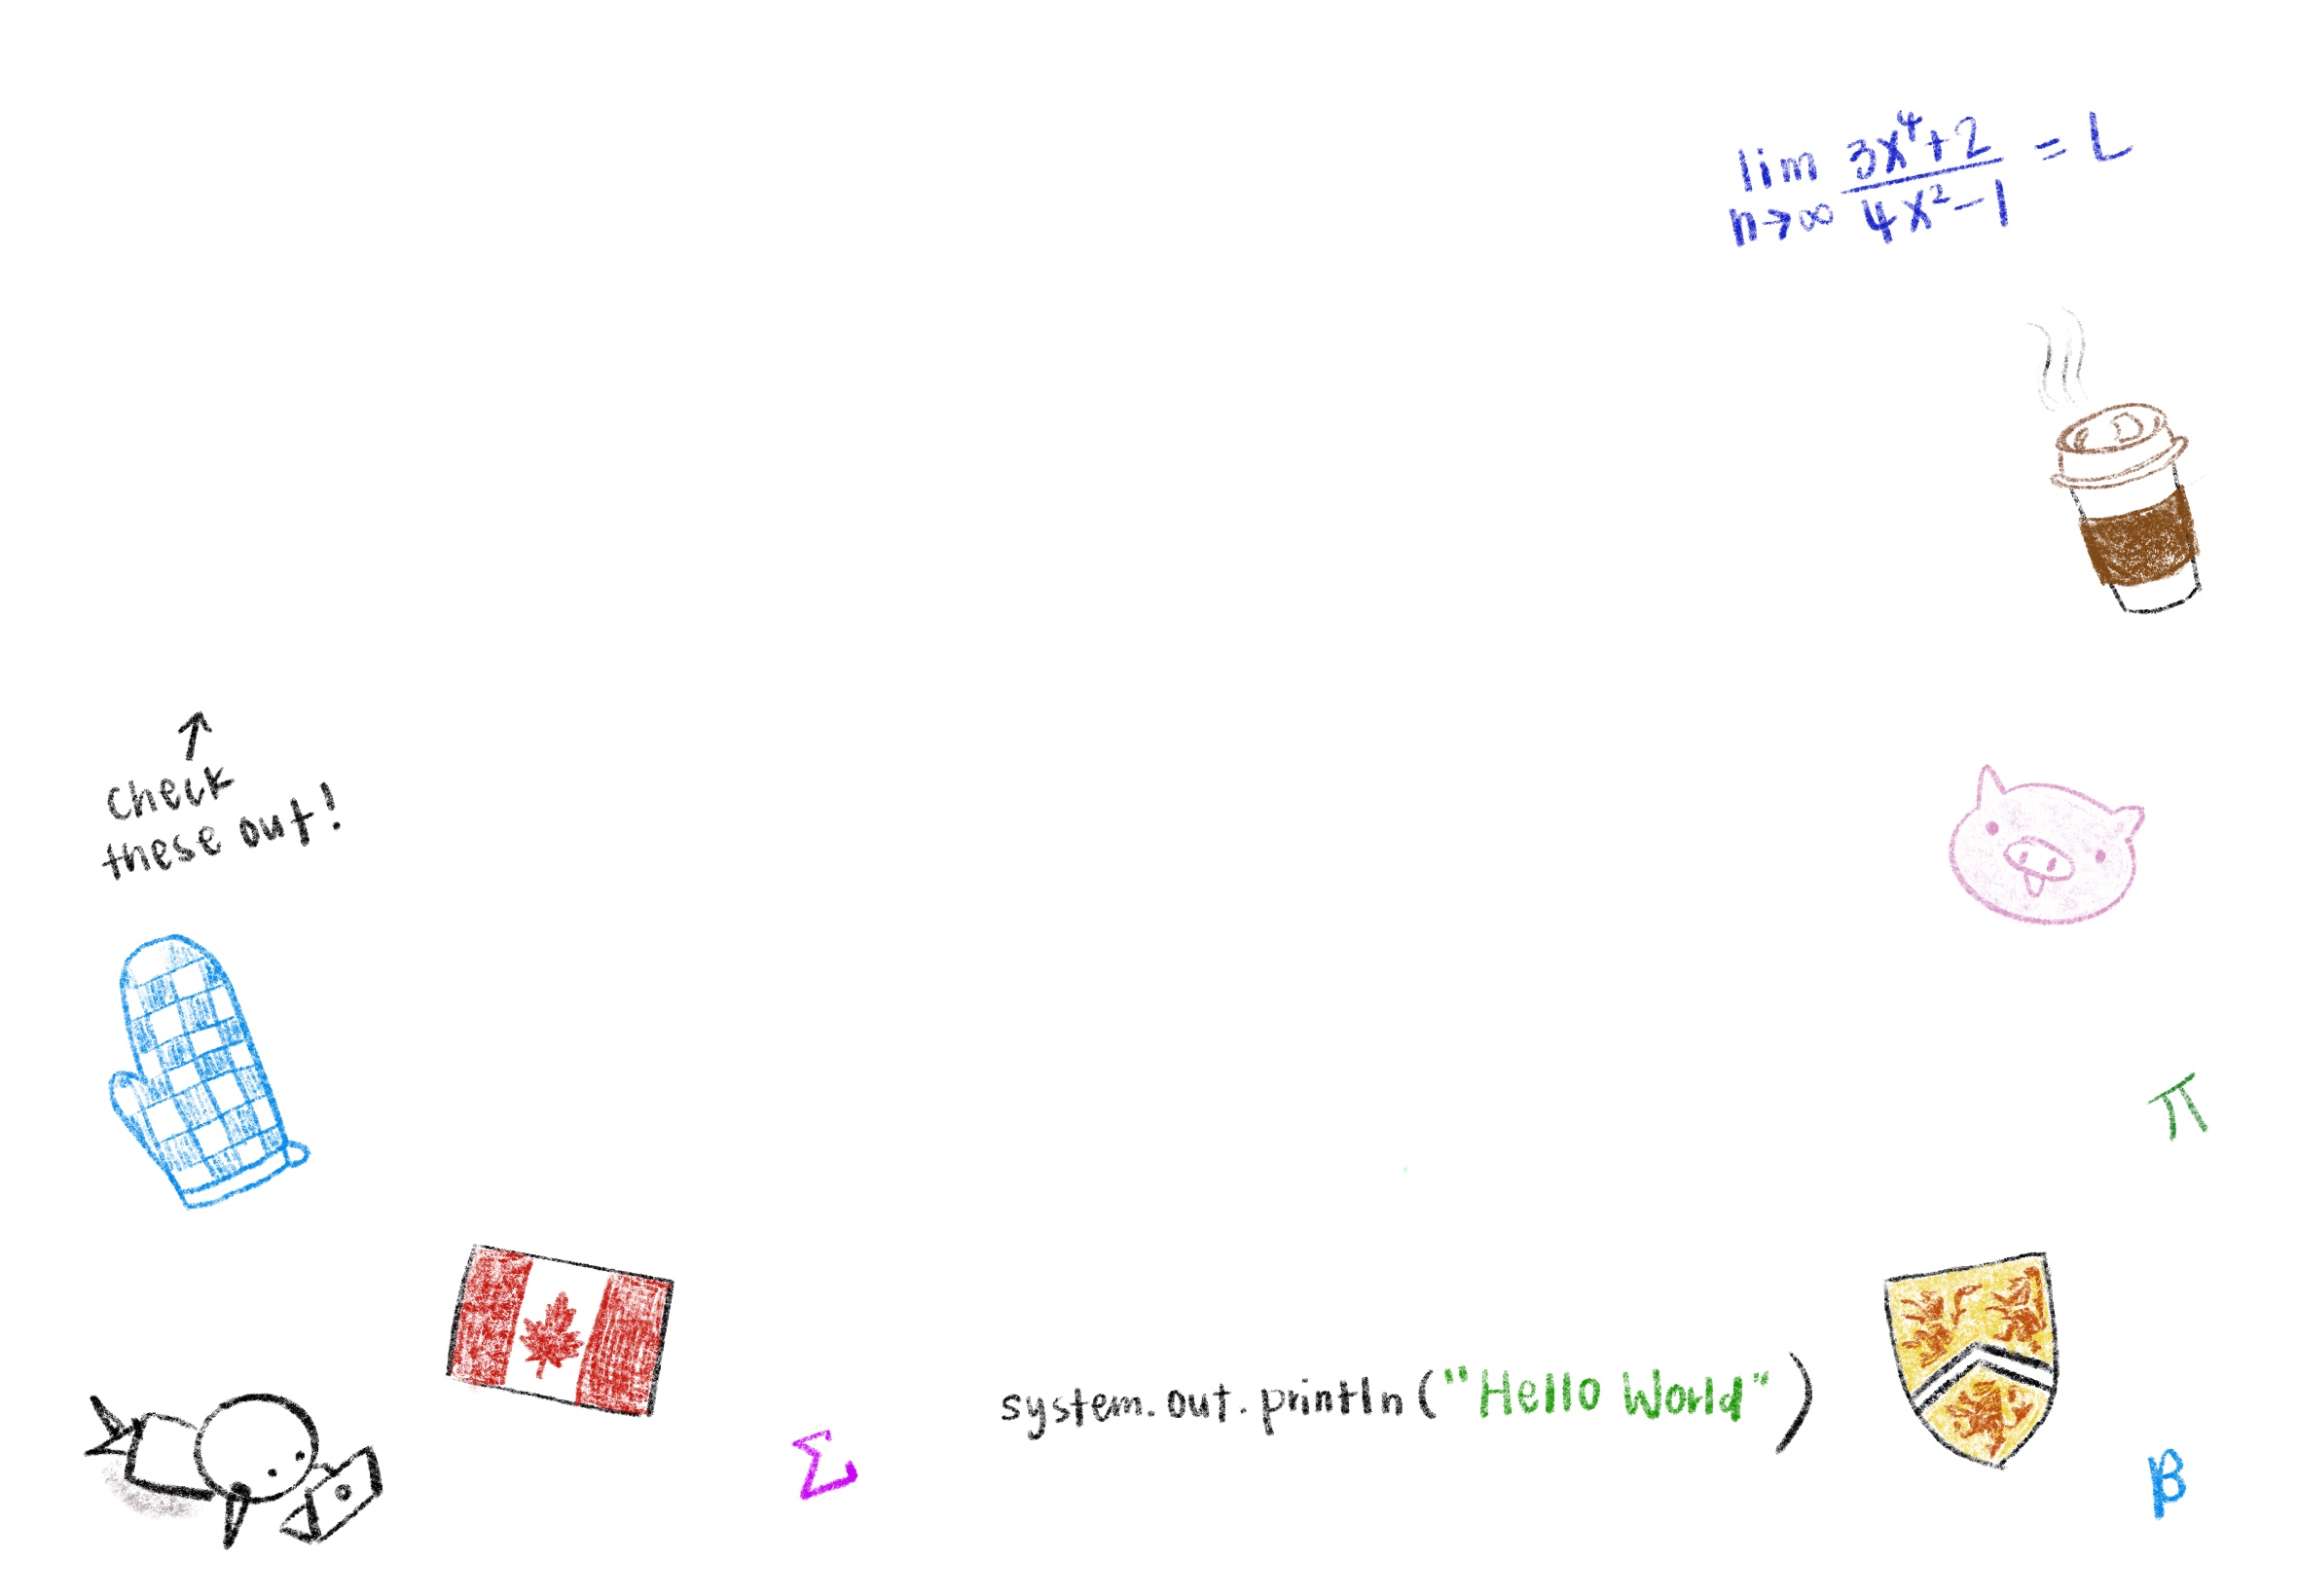 lim 3x⁴+2 = L
n→∞ 4x²-1
↑
check
these out!
π
system.out.println("Hello World")
Σ
β